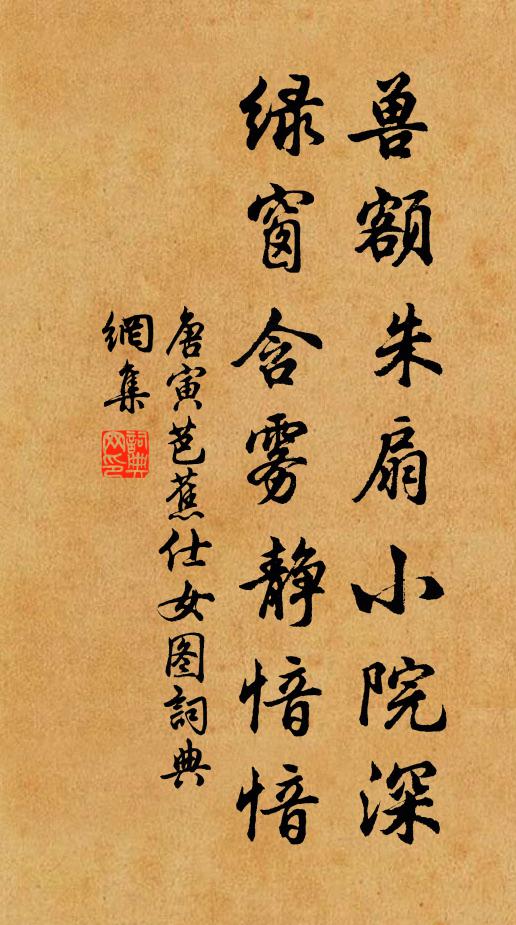 兽额朱扇小院深
绿窗含雾静愔愔
唐寅芭蕉仕女图词典
網集
詞典
网印